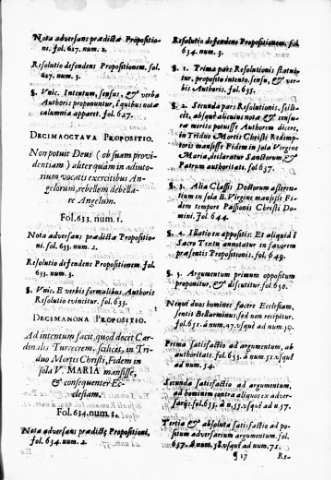 Nota adversans prædictæ Propositio-
ni, fol. 627. num. 2.
Resolutio defendens Propositionem, fol.
627. num. 3.
§. Vnic. Intentum, sensus, & verba
Authoris proponuntur, è quibus nota
calumnia apparet. fol. 627.
DECIMAOCTAVA PROPOSITIO.
Non potuit Deus (ob suam provi-
dentiam) aliter quàm in adiuto-
rium vocatis exercitibus An-
gelorum, rebellem debella-
re Angelum.
Fol. 633. num. 1.
Nota adversans prædictæ Propositio-
ni. fol. 633. num. 2.
Resolutio defendens Propositionem fol.
633. num. 3.
§. Vnic. E verbis formalibus Authoris
Resolutio evincitur. fol. 633.
DECIMANONA PROPOSITIO.
Ad intentum facit, quod docet Car-
dinalis Turrecrem. scilicet, in Tri-
duo Mortis Christi, Fidem in
sola V. MARIA mansisse,
& consequenter Ec-
clesiam.
Fol. 634. num. 1.
Nota adversans prædictę Propositioni,
fol. 634. num. 2.
Resolutio defendens Propositionem, fol.
634. num. 3.
§. 1. Prima pars Resolutionis statui-
tur, proposito intento, sensu, & ver-
bis Authoris. fol. 635.
§. 2. Secunda pars Resolutionis, scili-
cèt, absque alicuius nota & censu-
ra mortis potuisse Authorem dicere,
in Triduo Mortis Christi Redemp-
toris mansisse Fidem in sola Virgine
Maria, declaratur Sanctorum &
Patrum authoritate. fol 637.
§. 3. Alia Classis Doctorum asseren-
tium in sola B. Virgine mansisse Fi-
dem tempore Passionis Christi Do-
mini. fol 644.
§. 4. Illatio ex appositis: Et aliquid I
Sacro Textu annotatur in favorem
præsentis Propositionis. fol. 649.
§. 5. Argumentum primum oppositum
proponitur, & discutitur fol. 650.
Neque duos homines facere Ecclesiam,
sentit Bellarminus sed non recipitur.
fol. 651. à num 47. usque ad num 50.
Prima satisfactio ad argumentum, ab
authoritate. fol. 653. à num 51. usque
ad num.
Secunda satisfactio ad argumentum,
ad hominem contra aliquos ex adver-
sarijs. fol. 655. à u. 55. usque ad u 57.
Tertia & absoluta satisfactio ad po-
situm adversarium argumentum. fol.
657. à num. 58. usque ad num 71.
¶ 17
Re-